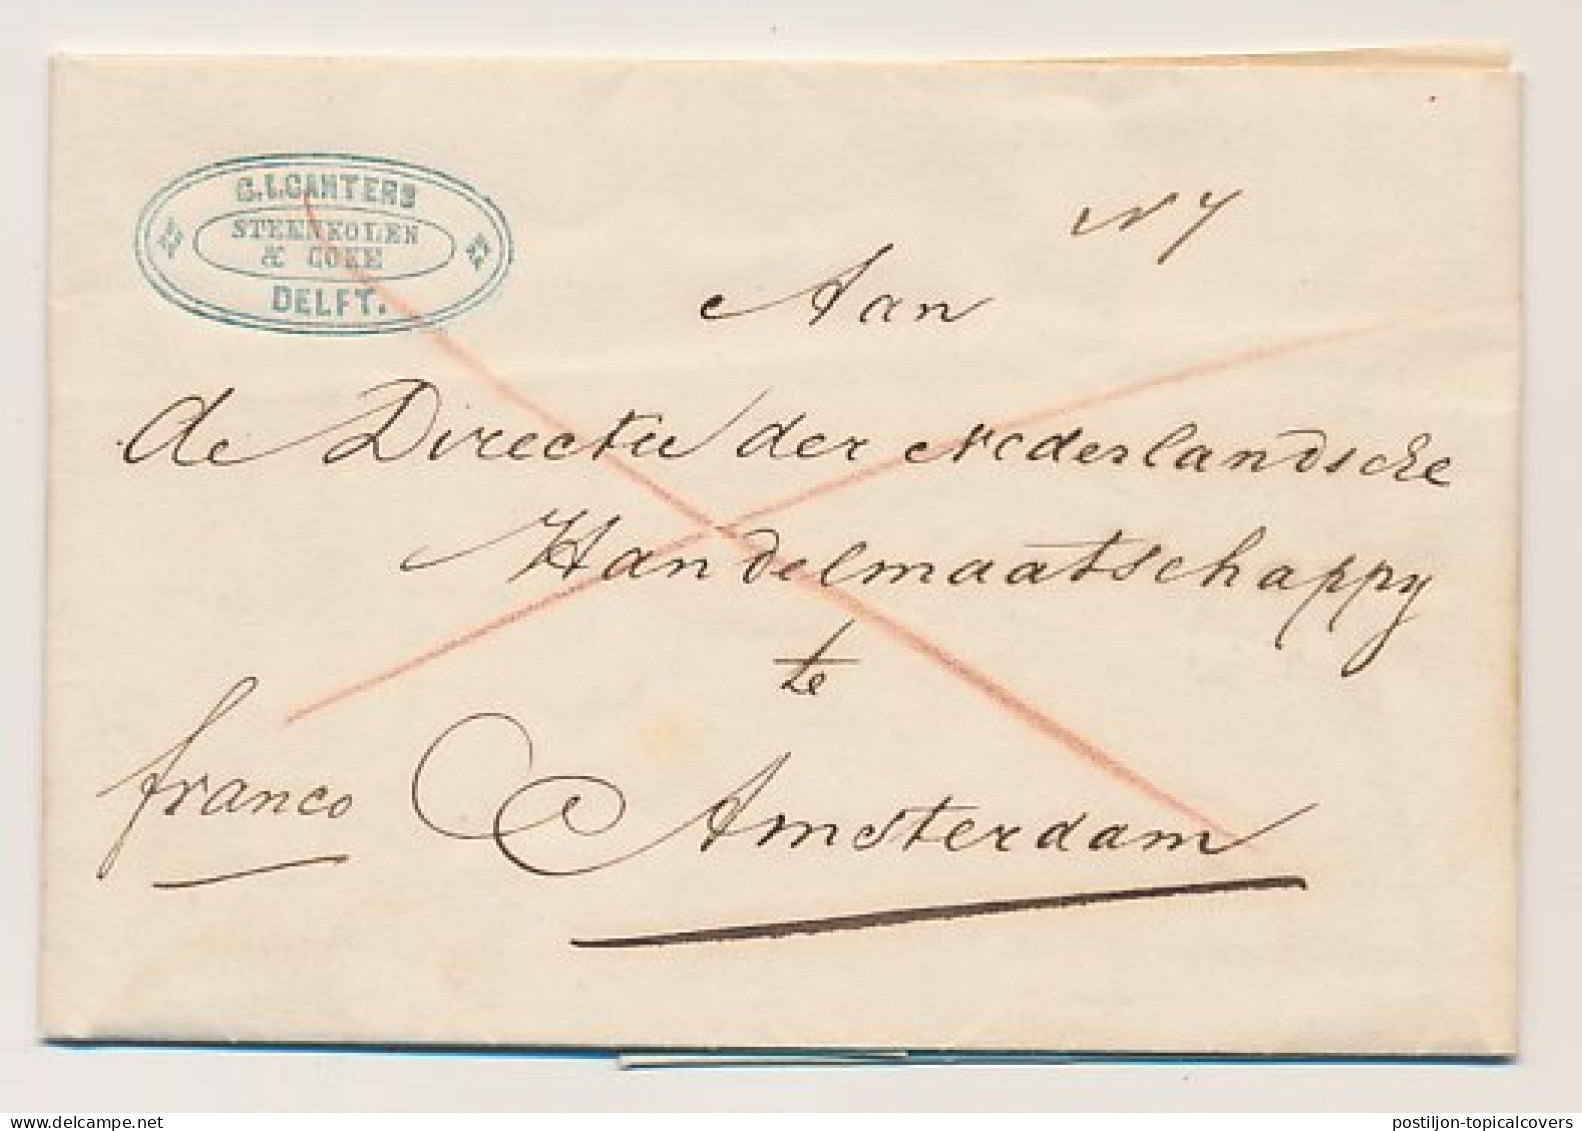 C.I.CANTERS
STEENKOLEN
& COKE
DELFT.
N 7
Aan
de Directie der Nederlandsche
Handelmaatschappy
te
franco Amsterdam
postiljon-topicalcovers